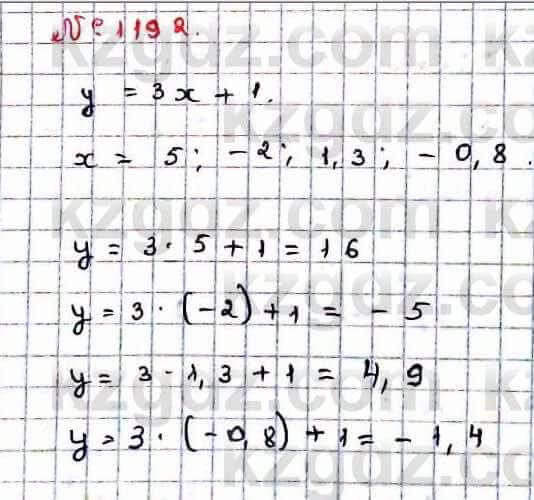 № 1192.
y = 3x + 1.
x = 5; -2; 1,3; -0,8.
y = 3 · 5 + 1 = 16
y = 3 · (-2) + 1 = -5
y = 3 · 1,3 + 1 = 4,9
y = 3 · (-0,8) + 1 = -1,4
kzgdz.com